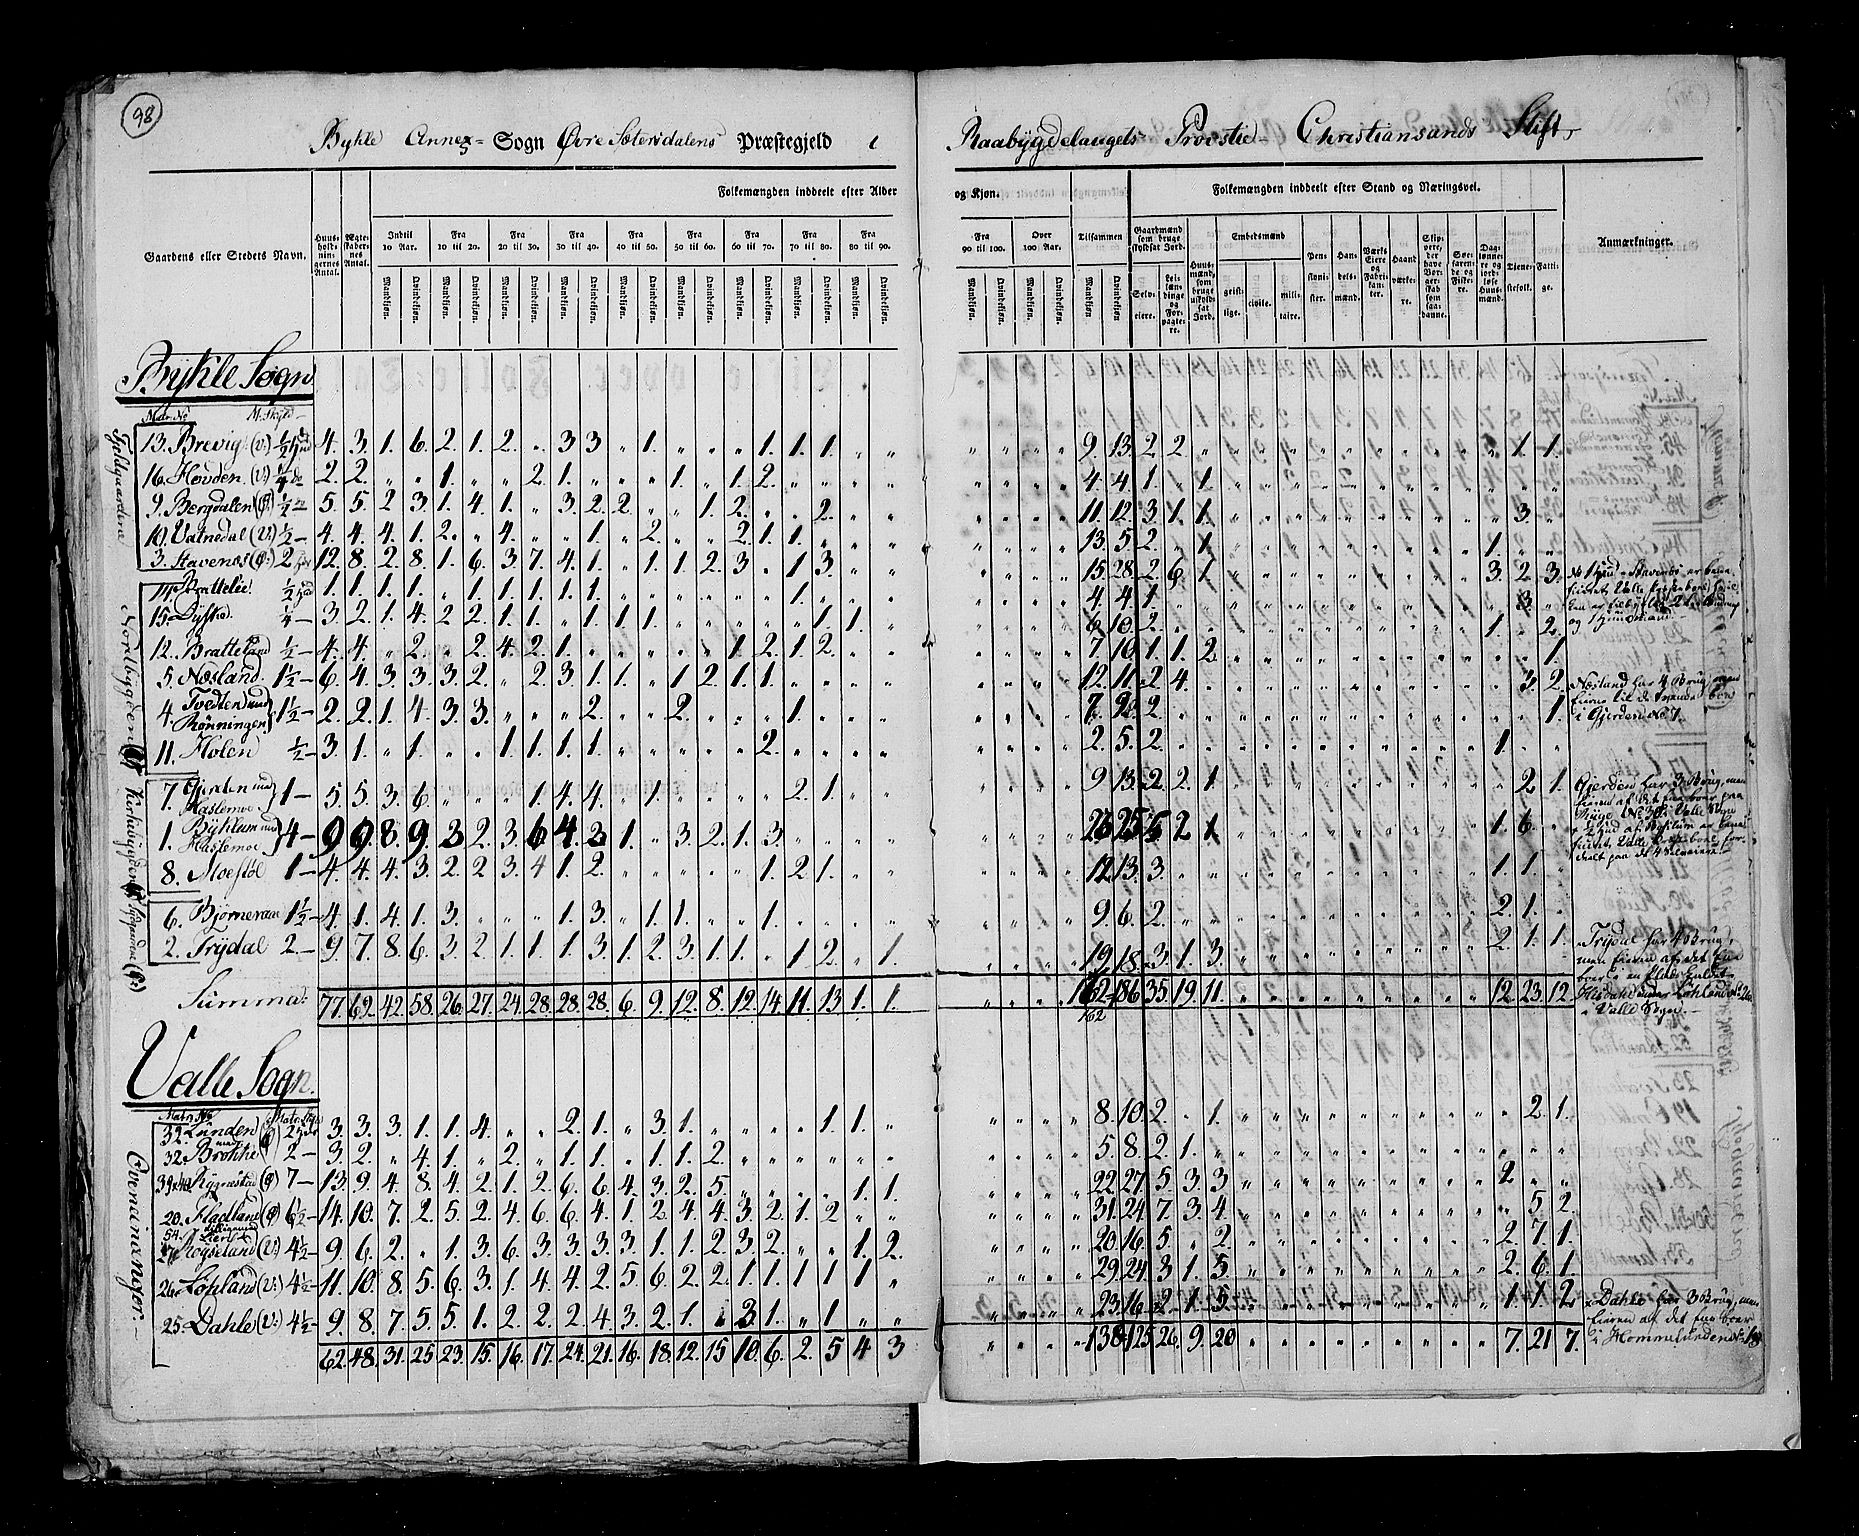 98
Bykle Annex-Sogn Øvre Sætersdalens Præstegjeld i Raabygdelaugets Provstie Christiansands Stift
Gaardens eller Stedets Navn.
Huus-holdnin-gernes Antal.
Ægte-skaber-nes Antal.
Folkemængden inddeelt efter Alder og Kjøn.
Indtil 10 Aar.
Fra 10 til 20.
Fra 20 til 30.
Fra 30 til 40.
Fra 40 til 50.
Fra 50 til 60.
Fra 60 til 70.
Fra 70 til 80.
Fra 80 til 90.
Fra 90 til 100.
Over 100 Aar.
Tilsammen
Mandkjøn. Qvindekjøn.
Folkemængden inddeelt efter Stand og Næringsvei.
Gaardmænd som bruge skyldsat Jord.
Selv-eiere.
Lei-lændinge og For-pagtere.
Huus-mænd, som bruge uskyldsat Jord.
Embedsmænd
geist-lige. civile. mili-taire.
Pen-sioni-ster.
Han-dels-mænd.
Værks Eiere og Fabri-kanter.
Haand-værke-re.
Skip-pere, der have Bor-gerskab som saa-danne.
Søe-farende og Fiske-re.
Dag-lønne-re og jord-løse Huus-mænd.
Tiene-stefolk.
Fatti-ge.
Anmærkninger.
Bykle Sogn
Matr. No M. Skyld
Fjeldgaardene
13. Brevig (V.) ½ hud 4. 3. 1. 6. 2. 1. 2. " 3 3 " 1. " " " 1. 1. 1. " " 9. 13. 2 2 1. 1.
16. Hovden (V.) ¼ do 2. 2. " " 1. " " 2. 1. " " " 1. " 1. 2. 4. 4. 1. " 1.
9. Bergdalen (Ø.) ½ 5. 5. 2. 3. 1. 4. 1. " 3. 2. 2. " " 1. 2. " " 2. " " 11. 12. 3. 1. 1. 3.
10. Vatnedal (V.) ½ 4. 4. 4. 1. 2. " 4. " " 1. " 2. " " 2. 1. 1. 13. 5. 2. " 1. 1.
3. Stavenæs (Ø.) 2 12. 8. 2. 8. 1. 6. 3. 7. 4. 1. " 1. 1. 2. 3. " 1. 3. 15. 28. 2. 6. 1. 3. 2. 3.
14. Bratteløe ½ hud 1. 1. 1. 1. " 1. 1. 1. 1. 1. 1. 4. 4. 1. 3.
15. Dyftæ ¼ 3. 2. 1. 4. 2. 2. 1. 1. " 1. 1. 1. 1. 6. 10. 2. 1. 2.
12. Bratteland ½ 4. 4. " 2. " 2. 4. 2. 1. 1. 2. 1. 2. 7. 10. 1. 1. 2. 1.
5. Næsland 1½ 6. 4. 3. 3. 3. 2. " 2. 3. 1. 1. " 1. 2. 1. 1. 12. 11. 2. 4. 3. 2.
4. Tvedten med Rønningen 1½ 2. 2. 1. 4. 3. 3. " " " 2. " " 2. 1. 7. 9. 2. 1.
11. Holen ½ 3. 1. " 1. " " 1. 1. 1. 1. 2. 2. 5. 2. 1.
7. Gjerden med Haslemoe 1 5. 5. 3. 6. " " " 1. 4. 4. " 1. 2. 1. 9. 13. 2. 2. 1. 2. 1.
1. Byklum med Haslemoe 4 9. 9. 8. 9. 3. 2. 3. 6. 4. 3. 1. " 3. 2. 1. 3. 23. 25. 5. 2. 1. 1. 6.
8. Moestøl 1 4. 4. 4. 3. 2. 2. 3. 4. 1. 2. 1. 2. 1. 12. 13. 3. 1. 1.
6. Bjørneraa 1½ 4. 1. 4. 1. 3. " " " 1. 3. " 1. 1. " " 1. 9. 6. 2. 2. 1.
2. Trydal 2 9. 7. 8. 6. 3. 2. 1. 1. 1. 3. 1. 2. 3. 1. 1. " 1. 2. " 1. 19. 18. 3. 1. 3. 2. 1. 1.
Summa: 77. 62. 42. 58. 26. 27. 24. 28. 28. 28. 6. 9. 12. 8. 12. 14. 11. 13. 1. 1. 162 186. 35. 19. 11. 12. 23. 12.
162
Næsland har 4 Brug, men
i Gjerden No 7.
Gjerden har 3 Brug, men
Trydal har 4 Brug,
men Eieren af det ene
i Valle Sogn.
Valle Sogn.
Matr. No Matr. Skyld
Qvemainxinger.
32. Linden 2 3. 3. 3. 1. 1. 4. " " 2. 1. " 3. 1. 1. 1. " 8. 10. 2. " 1. 2. 1.
32. Brokke 2 3. 2. " 4. 1. " 2. " 1. 1. " 1. 1. 2. 5. 8. 2. 1.
39 & 40 Rygnestad (Ø) 7 13. 9. 4. 8. 4. 2. 1. 2. 6. 6. 4. 3. 2. 5. 1. 1. 22. 27. 5. 3. 3. 2
20. Fladland (Ø) 6½ 14. 10. 7. 2. 5. 2. 4. 6. 6. 4. 1. 2. 4. 4. 3. 2. 1. 2 31. 24. 7. 3. 4. 5. 2.
Røyseland (V.) 4½ 9. 6. 2. " 1. 3. 6. 3. 3. 3. 3. 1. 1. 2. 3. 2. " " 1. 2. 20. 16. 5. " 2. 2. 7. 1.
26. Løhland (V.) 4½ 11. 10. 8. 5. 6. 3. 1. 4. 4. 2. 5. 6. 2. 2. 1. 1. 1. 1 1. " 29. 24. 3. 1. 5. 2. 6. 1.
25. Dahle (V.) 4½ 9. 8. 7. 5. 5. 1. 2. 2. 2. 4. 3. 2. 1. 1 3. 1. " 1 " " 23. 16. 2. 1. 5. 1. 1. 2
62. 48. 31. 25. 23. 15. 16. 17. 24. 21. 16. 18. 12. 15 10. 6. 2. 5 4 3 138. 125. 26. 9. 20 7. 21 7.
Dahle har 3 Brug, men
Eieren af det ene boer